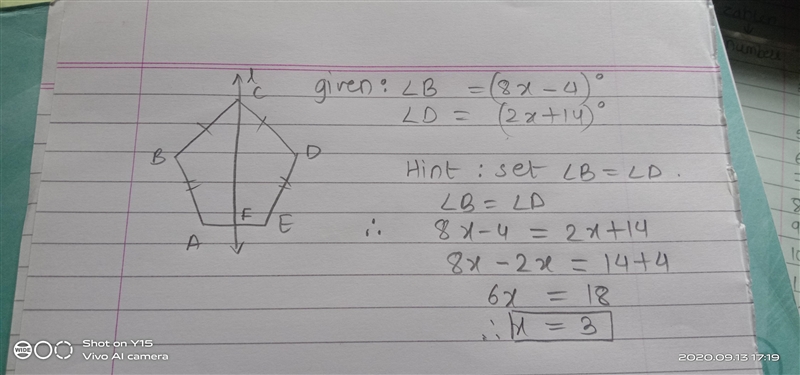 Number
l
C
given: ∠B = (8x-4)°
∠D = (2x+14)°
B
D
Hint: set ∠B = ∠D.
∠B = ∠D
F
A
E
∴ 8x-4 = 2x+14
8x - 2x = 14+4
6x = 18
∴ x = 3
WIDE
Shot on Y15
Vivo AI camera
2020.09.13 17:19